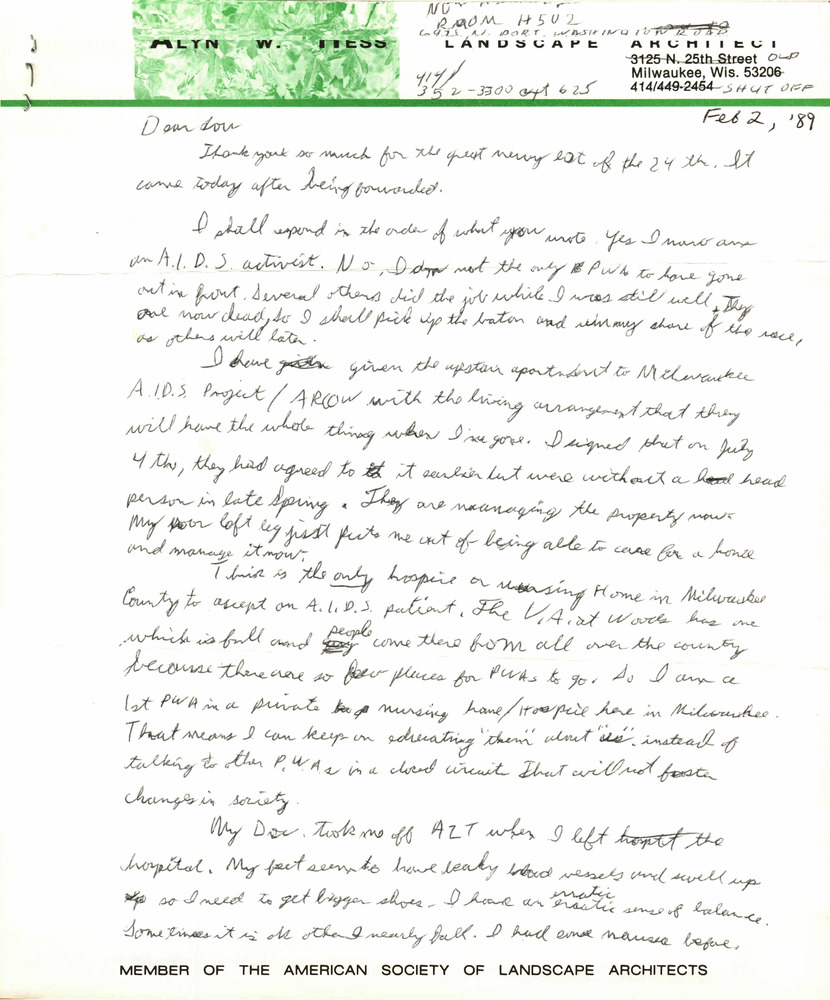 ROOM H502
6925 N. PORT. WASHINGTON ROAD
ALYN W. HESS LANDSCAPE ARCHITECT
3125 N. 25th Street OLD
Milwaukee, Wis. 53206
414/449-2454 SHUT OFF
414/
352-3300 ext 625
Feb 2, '89
Dear Lou
Thank you so much for the great newsy let of the 24 th. It
came today after being forwarded.
I shall respond in the order of what you wrote. Yes I now am
an A.I.D.S. activist. No, I am not the only PWA to have gone
out in front. Several others did the job while I was still well. They
are now dead, so I shall pick up the baton and run my share of the race,
as others will later.
I have given the upstairs apartment to Milwaukee
A.I.D.S. Project / ARCOW with the living arrangement that they
will have the whole thing when I'm gone. I signed that on July
4 th, they had agreed to it earlier but were without a head
person in late Spring. They are managing the property now.
My poor left leg just puts me out of being able to care for a house
and manage it now.
This is the only hospice or nursing Home in Milwaukee
County to accept an A.I.D.S. patient. The V.A. at Woods has one
which is full and people come there from all over the country
because there are so few places for PWAs to go. So I am a
1st PWA in a private nursing home/Hospice here in Milwaukee.
That means I can keep on educating "them" about "us". instead of
talking to other P.W.As in a closed circuit that will not foster
changes in society.
My Doc. took me off AZT when I left the
hospital. My feet seem to have leaky blood vessels and swell up
so I need to get bigger shoes. I have an erratic
erratic sense of balance.
Sometimes it is ok other I nearly fall. I had some nausea before,
MEMBER OF THE AMERICAN SOCIETY OF LANDSCAPE ARCHITECTS